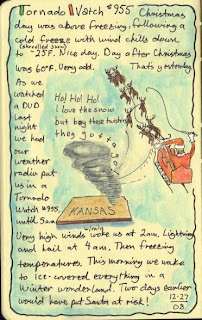 Tornado Watch #955 Christmas
day was above freezing, following a
cold freeze with wind chills down
(shovelled snow)
to -25F. Nice day. Day after Christmas
was 60°F. Very odd. Thats yesterday.
As we
watched
a DVD
last
night
we had
our
weather
radio put
us in a
Tornado
Watch #955
until 5am
Ho! Ho! Ho!
I love the snow
but boy these twisters
they go r
KANSAS
Very high winds woke us at 2am. Lightning
and hail at 4am. Then freezing
temperatures. This morning we wake
to ice-covered everything in a
winter wonderland. Two days earlier
would have put Santa at risk!
12-27
08